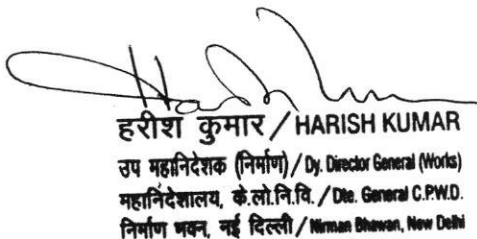 हरीश कुमार / HARISH KUMAR
उप महानिदेशक (निर्माण) / Dy. Director General (Works)
महानिदेशालय, के.लो.नि.वि. / Dte. General C.P.W.D.
निर्माण भवन, नई दिल्ली / Nirman Bhawan, New Delhi